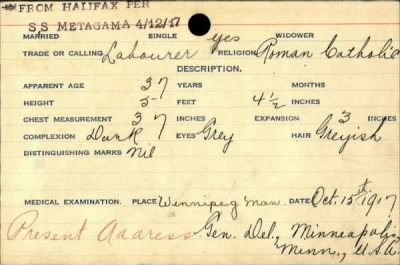 FROM HALIFAX PER
S.S METAGAMA 4/12/17
MARRIED SINGLE yes WIDOWER
TRADE OR CALLING Labourer RELIGION Roman Catholic
DESCRIPTION.
APPARENT AGE 37 YEARS MONTHS
HEIGHT 5 FEET 4½ INCHES
CHEST MEASUREMENT 37 INCHES EXPANSION 3 INCHES
COMPLEXION Dark EYES Grey HAIR Greyish
DISTINGUISHING MARKS Nil
MEDICAL EXAMINATION. PLACE Winnipeg Man. DATE Oct. 15th 1917
Present Address Gen. Del., Minneapolis
Minn., U.S.A.